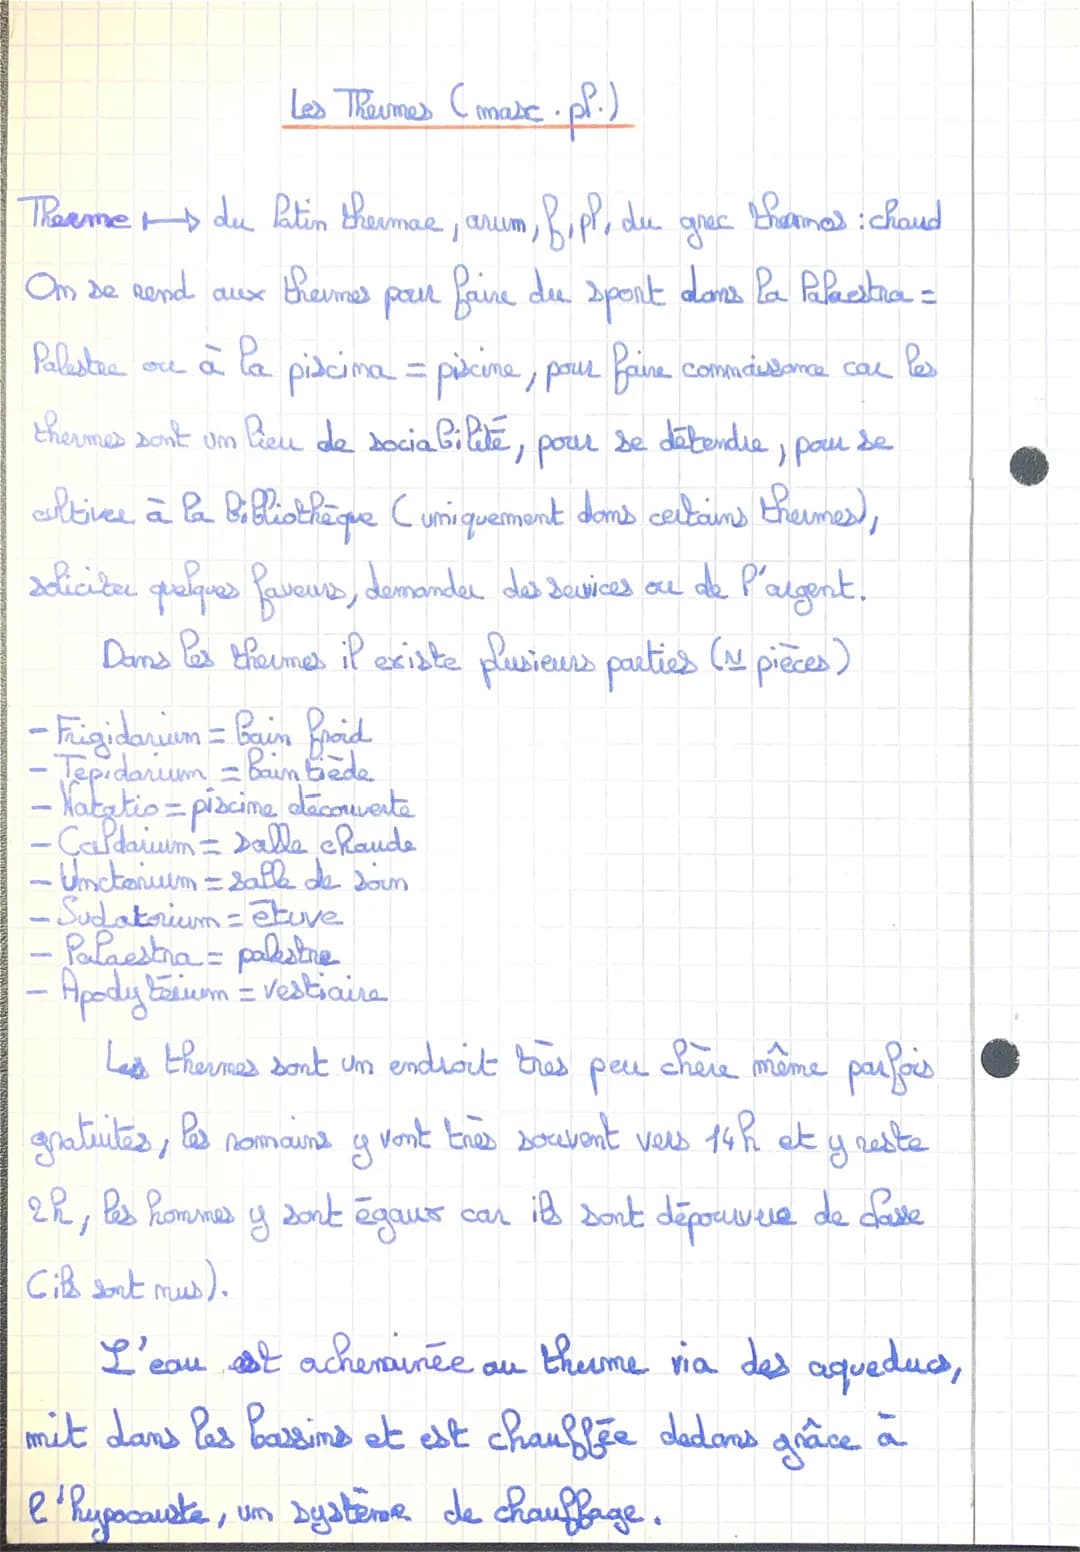 Les Thermes (masc. pl.)
Therme ↦ du latin thermae, arum, f, pl, du grec thermos : chaud
On se rend aux thermes pour faire du sport dans la Palaestra =
Palestre ou à la piscina = piscine, pour faire connaissance car les
thermes sont un lieu de sociabilité, pour se détendre, pour se
cultiver à la bibliothèque (uniquement dans certains thermes),
soliciter quelques faveurs, demander des services ou de l'argent.
Dans les thermes il existe plusieurs parties (≃ pièces)
- Frigidarium = bain froid
- Tepidarium = bain tiède
- Natatio = piscine découverte
- Caldarium = salle chaude
- Unctorium = salle de soin
- Sudatorium = étuve
- Palaestra = palestre
- Apodyterium = vestiaire
Les thermes sont un endroit très peu chère même parfois
gratuites, les romains y vont très souvent vers 14h et y reste
2h, les hommes y sont égaux car ils sont dépourvue de classe
(ils sont nus).
L'eau est acheminée au therme via des aqueducs,
mit dans les bassins et est chauffée dedans grâce à
l'hypocauste, un système de chauffage.